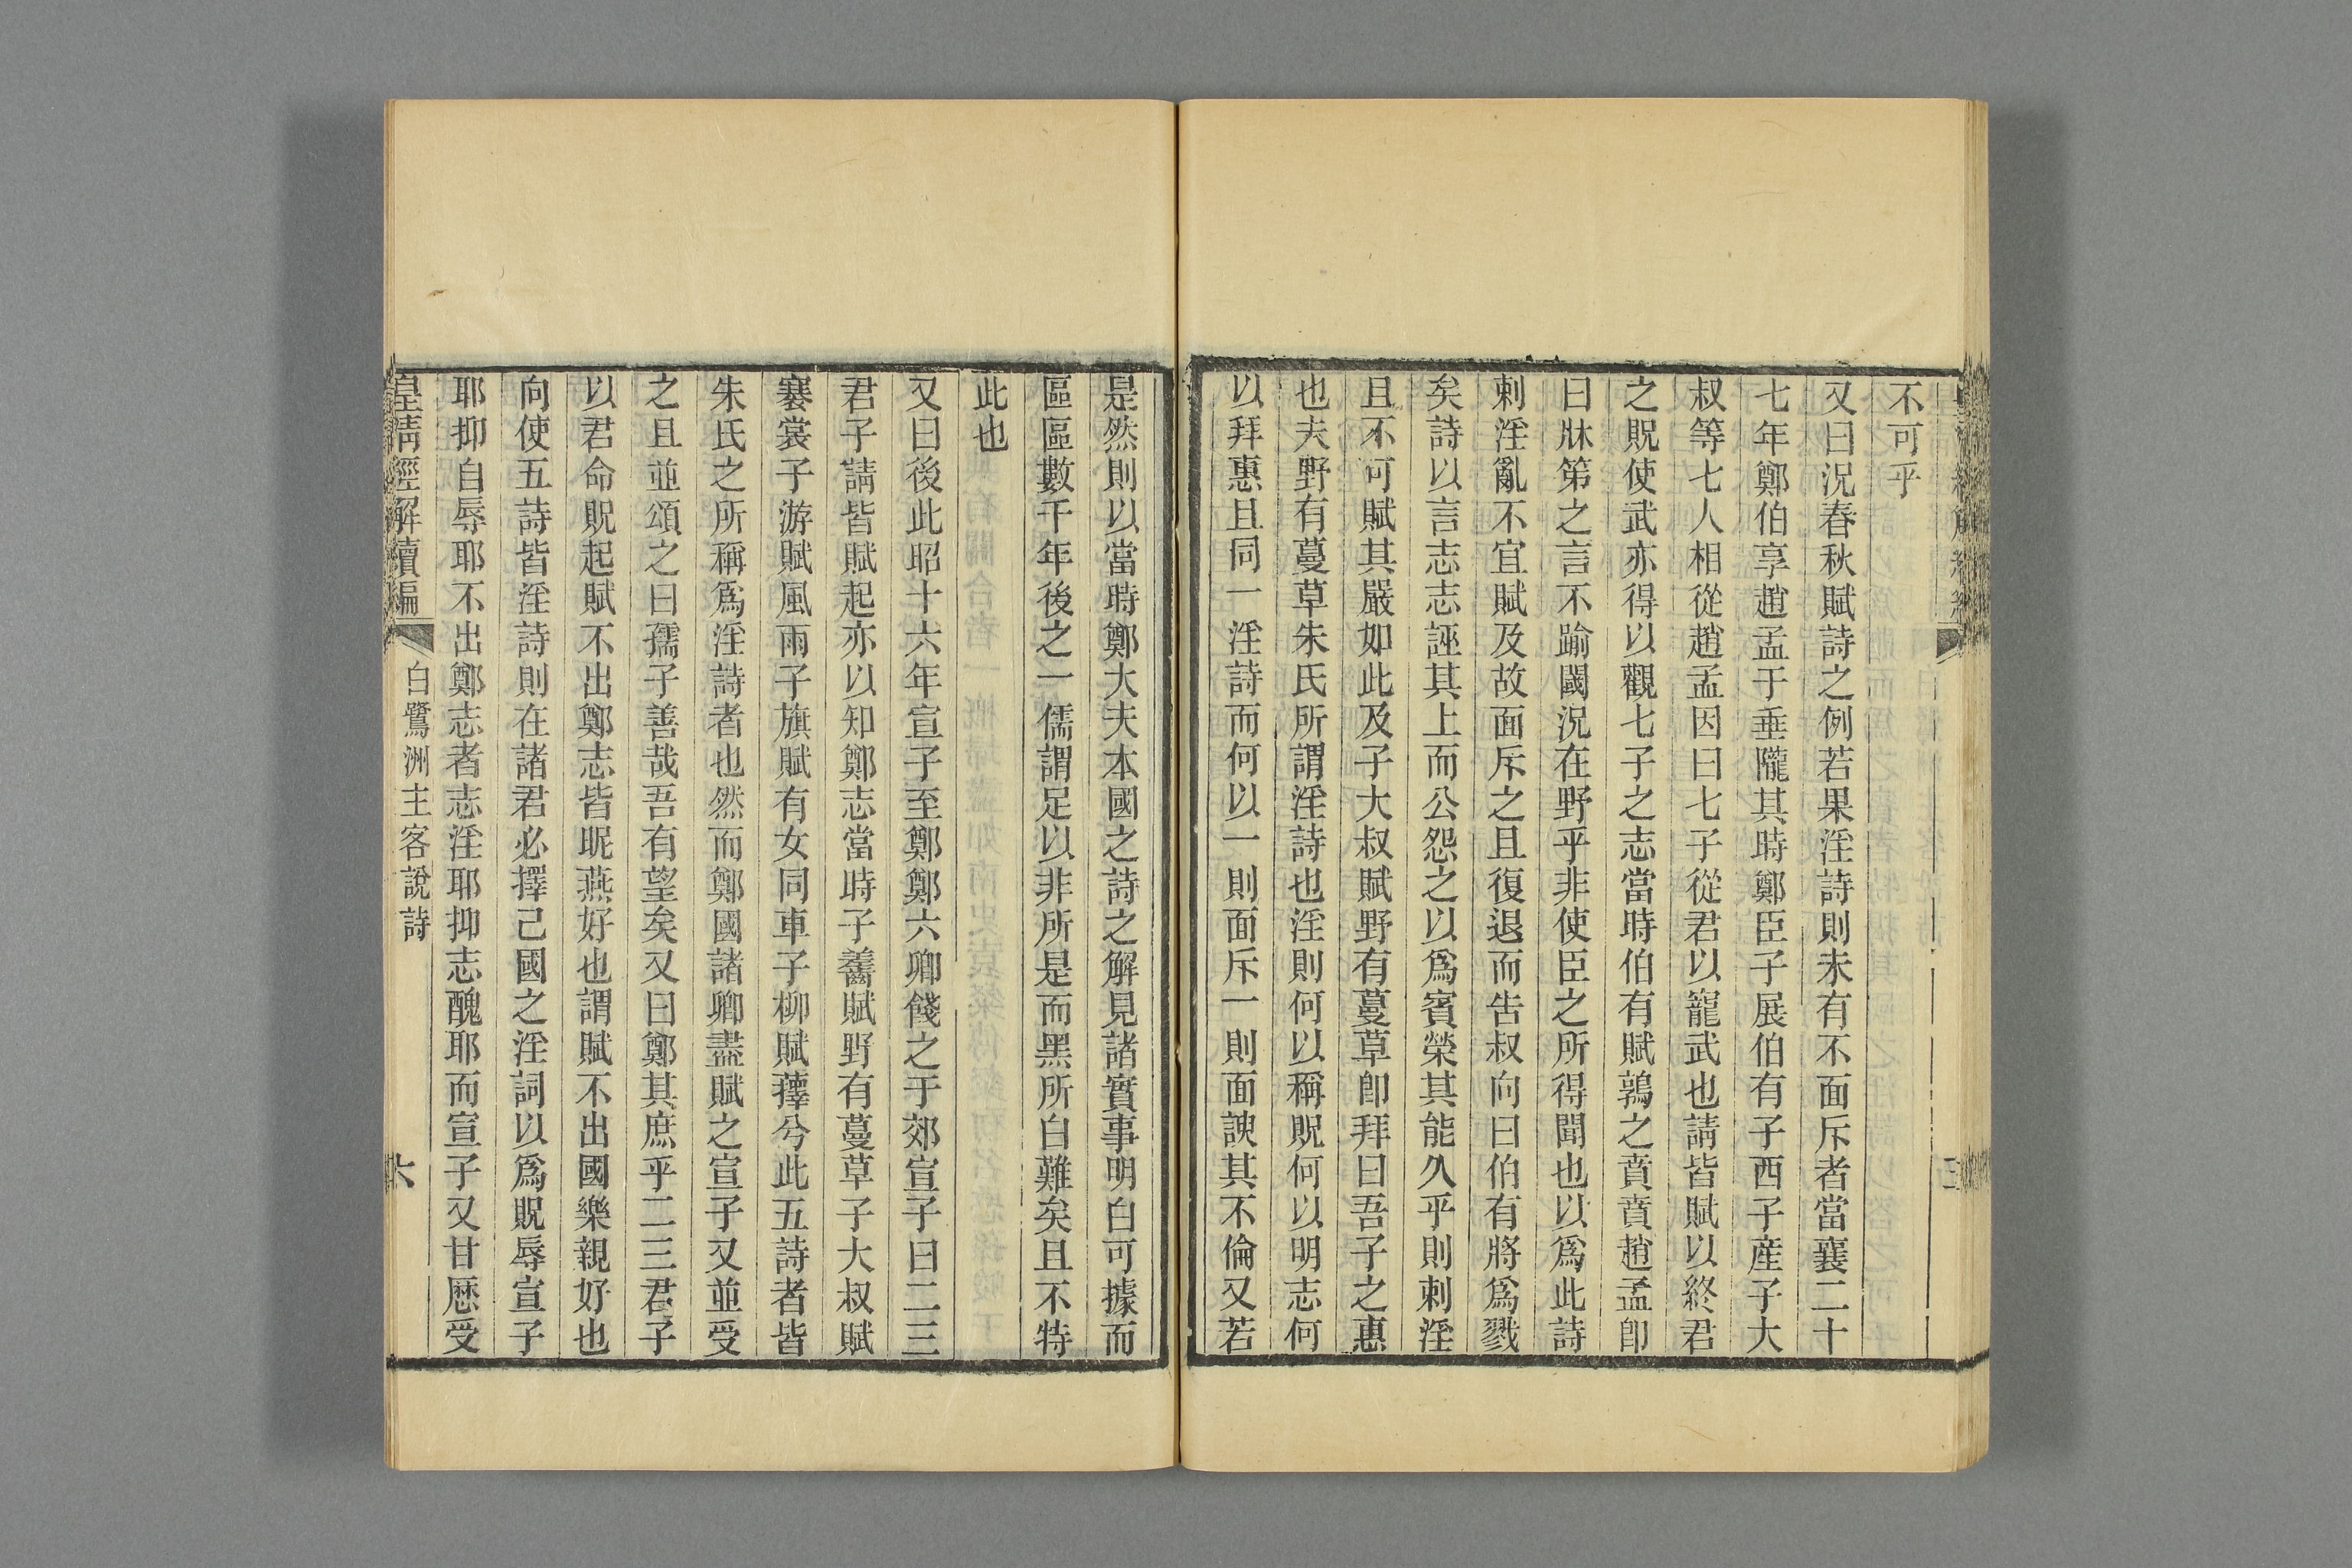 不可乎
又曰況春秋賦詩之例若果淫詩則未有不面斥者當襄二十
七年鄭伯享趙孟于垂隴其時鄭臣子展伯有子西子產子大
叔等七人相從趙孟因曰七子從君以寵武也請皆賦以終君
之貺使武亦得以觀七子之志當時伯有賦鶉之賁賁趙孟卽
曰牀第之言不踰閾況在野乎非使臣之所得聞也以爲此詩
刺淫亂不宜賦及故面斥之且復退而告叔向曰伯有將爲戮
矣詩以言志志誣其上而公怨之以爲賓榮其能久乎則刺淫
且不可賦其嚴如此及子大叔賦野有蔓草卽拜曰吾子之惠
也夫野有蔓草朱氏所謂淫詩也淫則何以稱貺何以明志何
以拜惠且同一淫詩而何以一則面斥一則面諛其不倫又若
是然則以當時鄭大夫本國之詩之解見諸實事明白可據而
區區數千年後之一儒謂足以非所是而黑所白難矣且不特
此也
又曰後此昭十六年宣子至鄭鄭六卿餞之于郊宣子曰二三
君子請皆賦起亦以知鄭志當時子齹賦野有蔓草子大叔賦
褰裳子游賦風雨子旗賦有女同車子柳賦蘀兮此五詩者皆
朱氏之所稱爲淫詩者也然而鄭國諸卿盡賦之宣子又並受
之且並頌之曰孺子善哉吾有望矣又曰鄭其庶乎二三君子
以君命貺起賦不出鄭志皆昵燕好也謂賦不出國樂親好也
向使五詩皆淫詩則在諸君必擇己國之淫詞以爲貺辱宣子
耶抑自辱耶不出鄭志者志淫耶抑志醜耶而宣子又甘歷受
皇淸經解續編
白鷺洲主客說詩
六